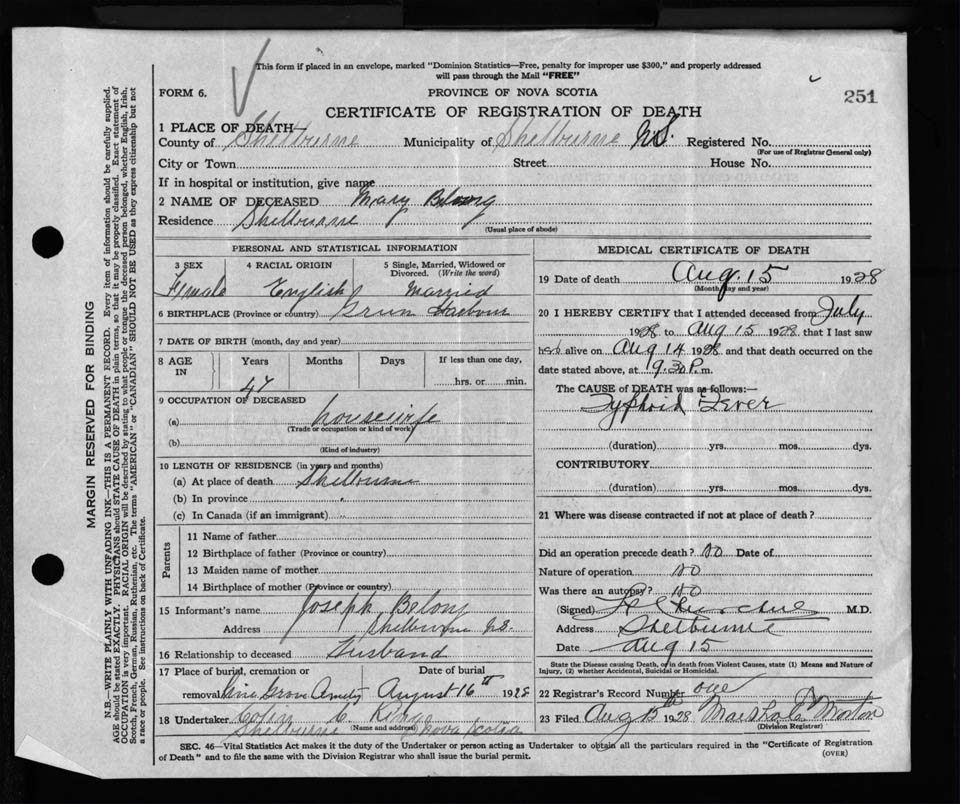 This form if placed in an envelope, marked "Dominion Statistics—Free, penalty for improper use $300," and properly addressed
will pass through the Mail "FREE"
FORM 6.
PROVINCE OF NOVA SCOTIA
251
CERTIFICATE OF REGISTRATION OF DEATH
1 PLACE OF DEATH—
County of Shelburne Municipality of Shelburne N.S. Registered No.
(For use of Registrar General only)
City or Town Street House No.
If in hospital or institution, give name
2 NAME OF DECEASED Mary Belong
Residence Shelburne
(Usual place of abode)
PERSONAL AND STATISTICAL INFORMATION
3 SEX 4 RACIAL ORIGIN 5 Single, Married, Widowed or
Divorced. (Write the word)
Female English Married
6 BIRTHPLACE (Province or country) Green Harbour
7 DATE OF BIRTH (month, day and year)
8 AGE IN Years Months Days If less than one day,
47 hrs. or min.
9 OCCUPATION OF DECEASED
(a) housewife
(Trade or occupation or kind of work)
(b)
(Kind of industry)
10 LENGTH OF RESIDENCE (in years and months)
(a) At place of death Shelburne
(b) In province
(c) In Canada (if an immigrant)
Parents
11 Name of father
12 Birthplace of father (Province or country)
13 Maiden name of mother
14 Birthplace of mother (Province or country)
15 Informant's name Joseph Belong
Address Shelburne N.S.
16 Relationship to deceased Husband
17 Place of burial, cremation or Date of burial
removal Pine Grove August 16th 1928
18 Undertaker C. King
(Name and address)
Shelburne Nova Scotia
MEDICAL CERTIFICATE OF DEATH
19 Date of death Aug. 15 1928
(Month, day and year)
20 I HEREBY CERTIFY that I attended deceased from July
1928 to Aug 15 1928 that I last saw
her alive on Aug 14 1928 and that death occurred on the
date stated above, at 9.30 P.m.
The CAUSE of DEATH was as follows:—
Typhoid Fever
(duration) yrs. mos. dys.
CONTRIBUTORY
(duration) yrs. mos. dys.
21 Where was disease contracted if not at place of death?
Did an operation precede death? No Date of
Nature of operation No
Was there an autopsy? No
(Signed) M.D.
Address Shelburne
Date Aug 15
State the Disease causing Death, or in death from Violent Causes, state (1) Means and Nature of
Injury, (2) whether Accidental, Suicidal or Homicidal.
22 Registrar's Record Number one
23 Filed Aug 15th 1928 Morton
(Division Registrar)
SEC. 46—Vital Statistics Act makes it the duty of the Undertaker or person acting as Undertaker to obtain all the particulars required in the "Certificate of Registration
of Death" and to file the same with the Division Registrar who shall issue the burial permit.
(OVER)
MARGIN RESERVED FOR BINDING
N.B.—WRITE PLAINLY WITH UNFADING INK—THIS IS A PERMANENT RECORD. Every item of information should be carefully supplied.
AGE should be stated EXACTLY. PHYSICIANS should STATE CAUSE OF DEATH in plain terms, so that it may be properly classified. Exact statement of
OCCUPATION is very important. RACIAL ORIGIN will be described by stating to what people or tongue the deceased person belonged, whether English, Irish,
Scotch, French, German, Russian, Ruthenian, etc. The terms "AMERICAN" or "CANADIAN" SHOULD NOT BE USED as they express citizenship but not
a race or people. See instructions on back of Certificate.